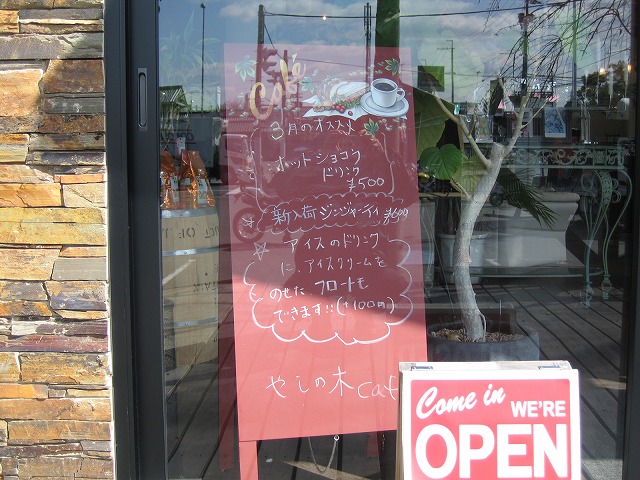 Café
3月のオススメ
ホットショコラ
ドリンク
¥500
新入荷 ジンジャーティ ¥600
アイスのドリンク
に、アイスクリームを
のせた フロートも
できます!!(+100円)
やしの木 cafe
Come in
WE'RE
OPEN